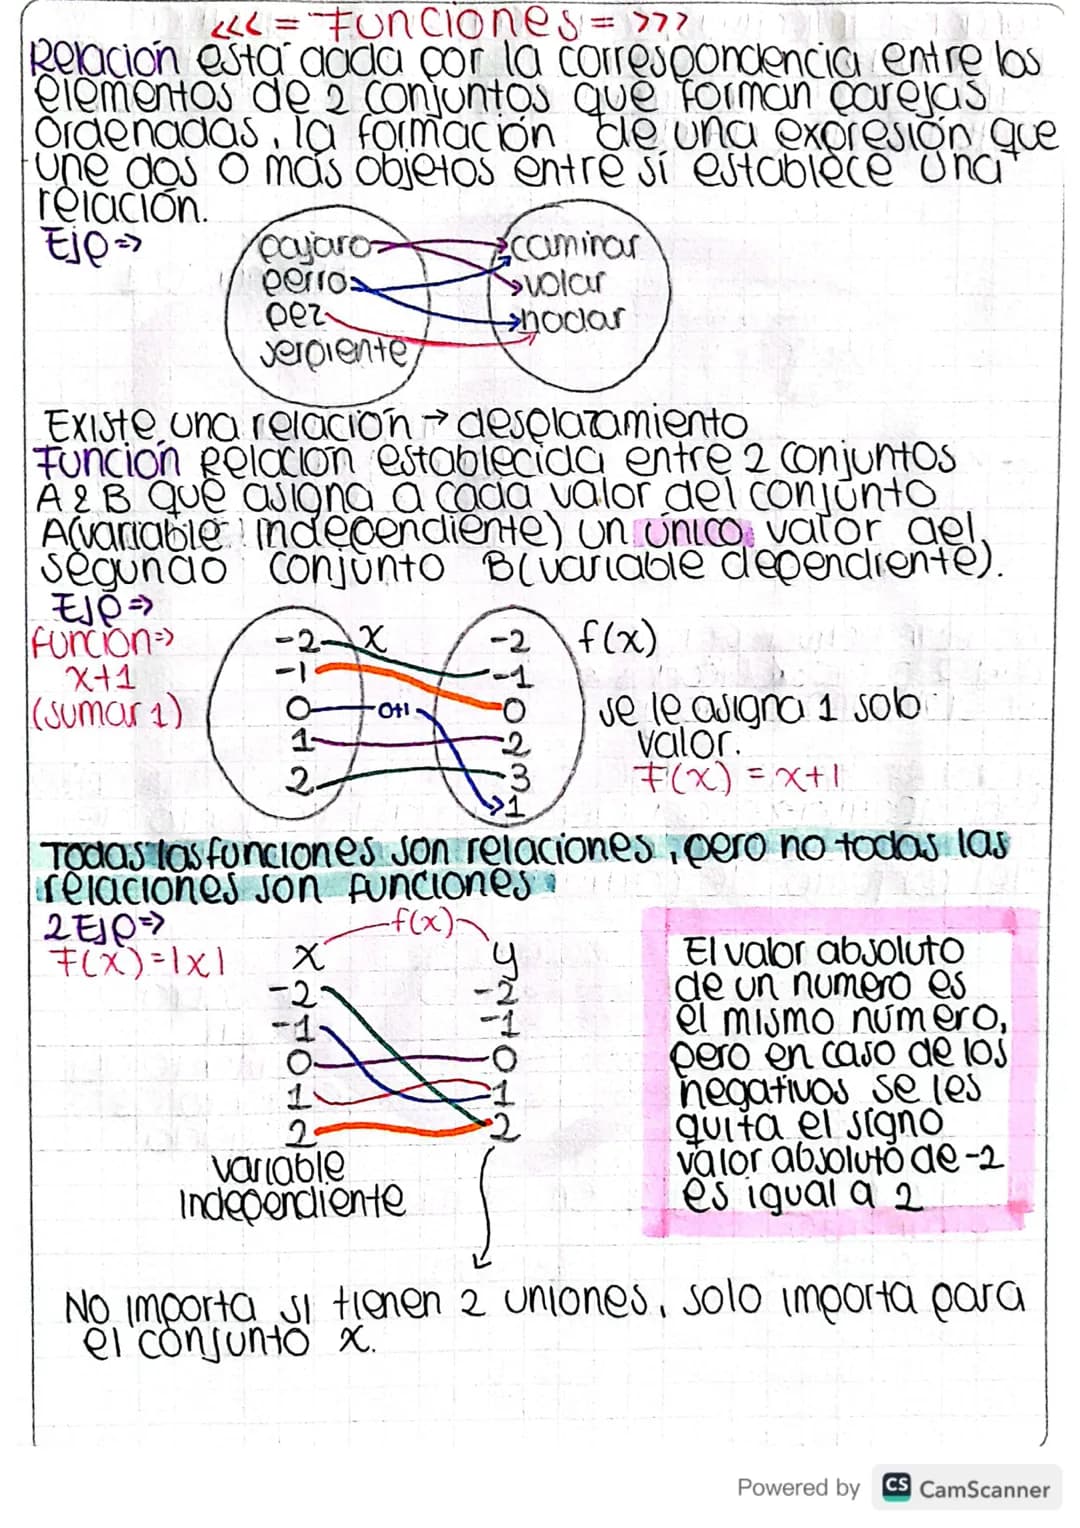 <<< = Funciones = >>>
Relación está dada por la correspondencia entre los
elementos de 2 conjuntos que forman parejas
ordenadas, la formación de una expresión que
une dos o más objetos entre sí establece una
relación.
Ejp =>
pajaro
perro
pez
serpiente
caminar
volar
nadar
Existe una relación → desplazamiento
Función Relación establecida entre 2 conjuntos
A & B que asigna a cada valor del conjunto
A(variable independiente) un único valor del
segundo conjunto B(variable dependiente).
Ejp =>
función =>
x+1
(sumar 1)
-2 x
-1
0
1
2
0+1
-2
-1
0
2
3
1
f(x)
se le asigna 1 solo
valor.
F(x) = x+1
Todas las funciones son relaciones, pero no todas las
relaciones son funciones
2 Ejp =>
F(x)=|x|
f(x)
x
-2
-1
0
1
2
y
-2
-1
0
1
2
variable
Independiente
El valor absoluto
de un numero es
el mismo número,
pero en caso de los
negativos se les
quita el signo
valor absoluto de -2
es igual a 2
No importa si tienen 2 uniones, solo importa para
el conjunto x.
Powered by CS CamScanner